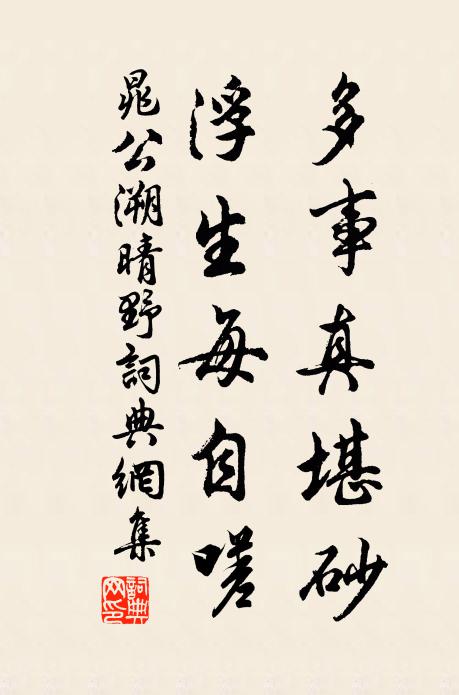 多事真堪砂
浮生每自嗟
晁公溯晴野詞典網集
詞典網印